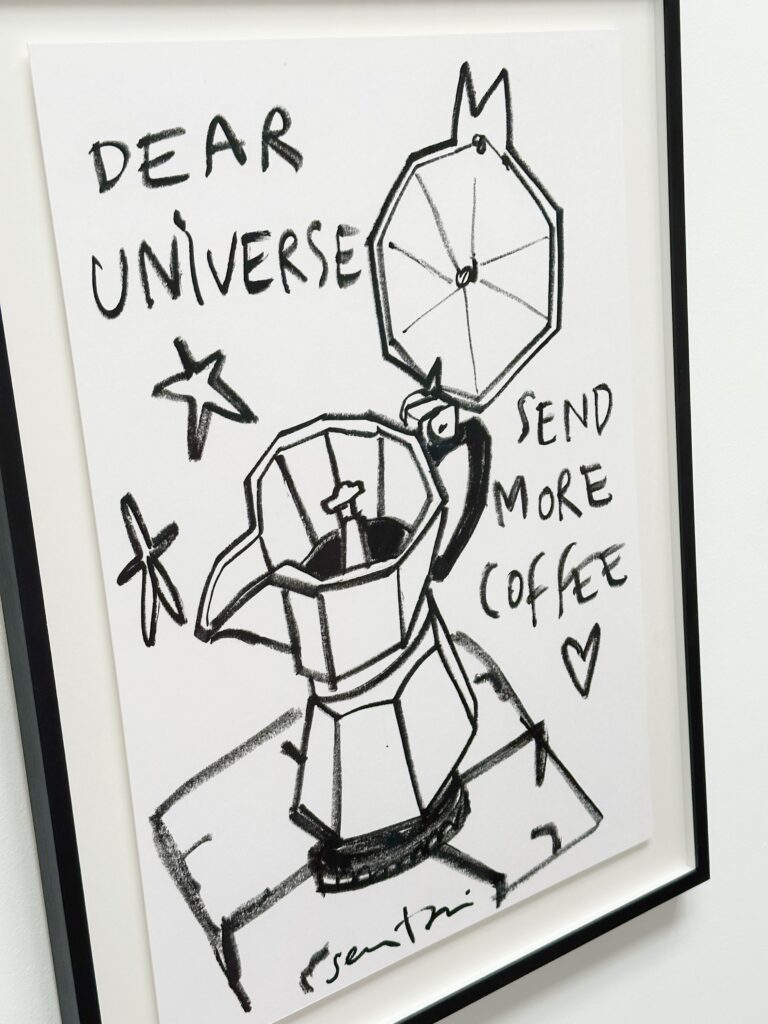 DEAR
UNiVERSE
SEND
MORE
COFFEE